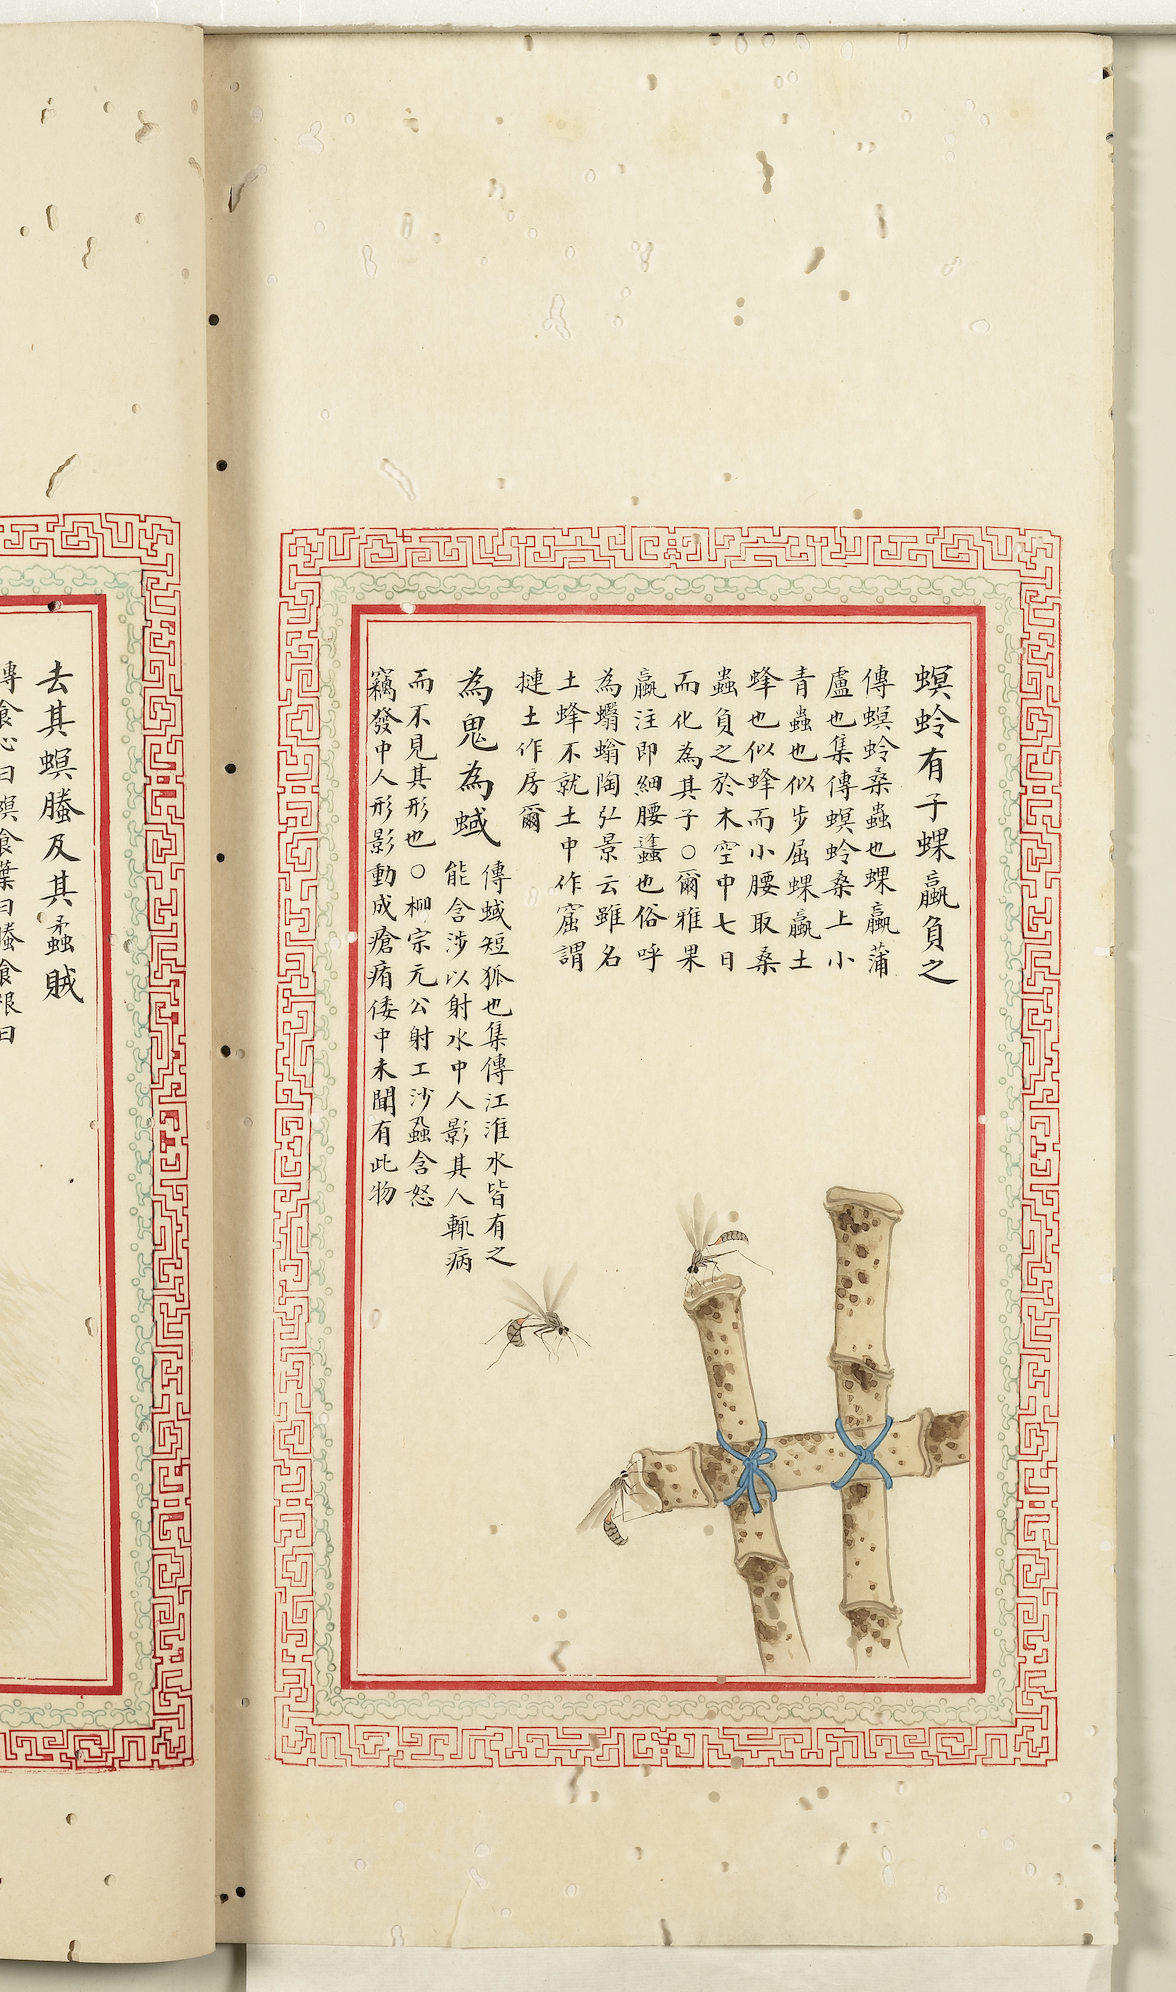 螟蛉有子蜾蠃負之
傳螟蛉桑蟲也蜾蠃蒲
盧也集傳螟蛉桑上小
青蟲也似步屈蜾蠃土
蜂也似蜂而小腰取桑
蟲負之於木空中七日
而化為其子○爾雅果
蠃注即細腰蠭也俗呼
為蠮螉陶弘景云雖名
土蜂不就土中作窟謂
摙土作房爾
為鬼為蜮
傳蜮短狐也集傳江淮水皆有之
能含沙以射水中人影其人輒病
而不見其形也○柳宗元公射工沙蝨含怒
竊發中人形影動成瘡痏倭中未聞有此物
去其螟螣及其蟊賊
傳食心曰螟食葉曰螣食根曰